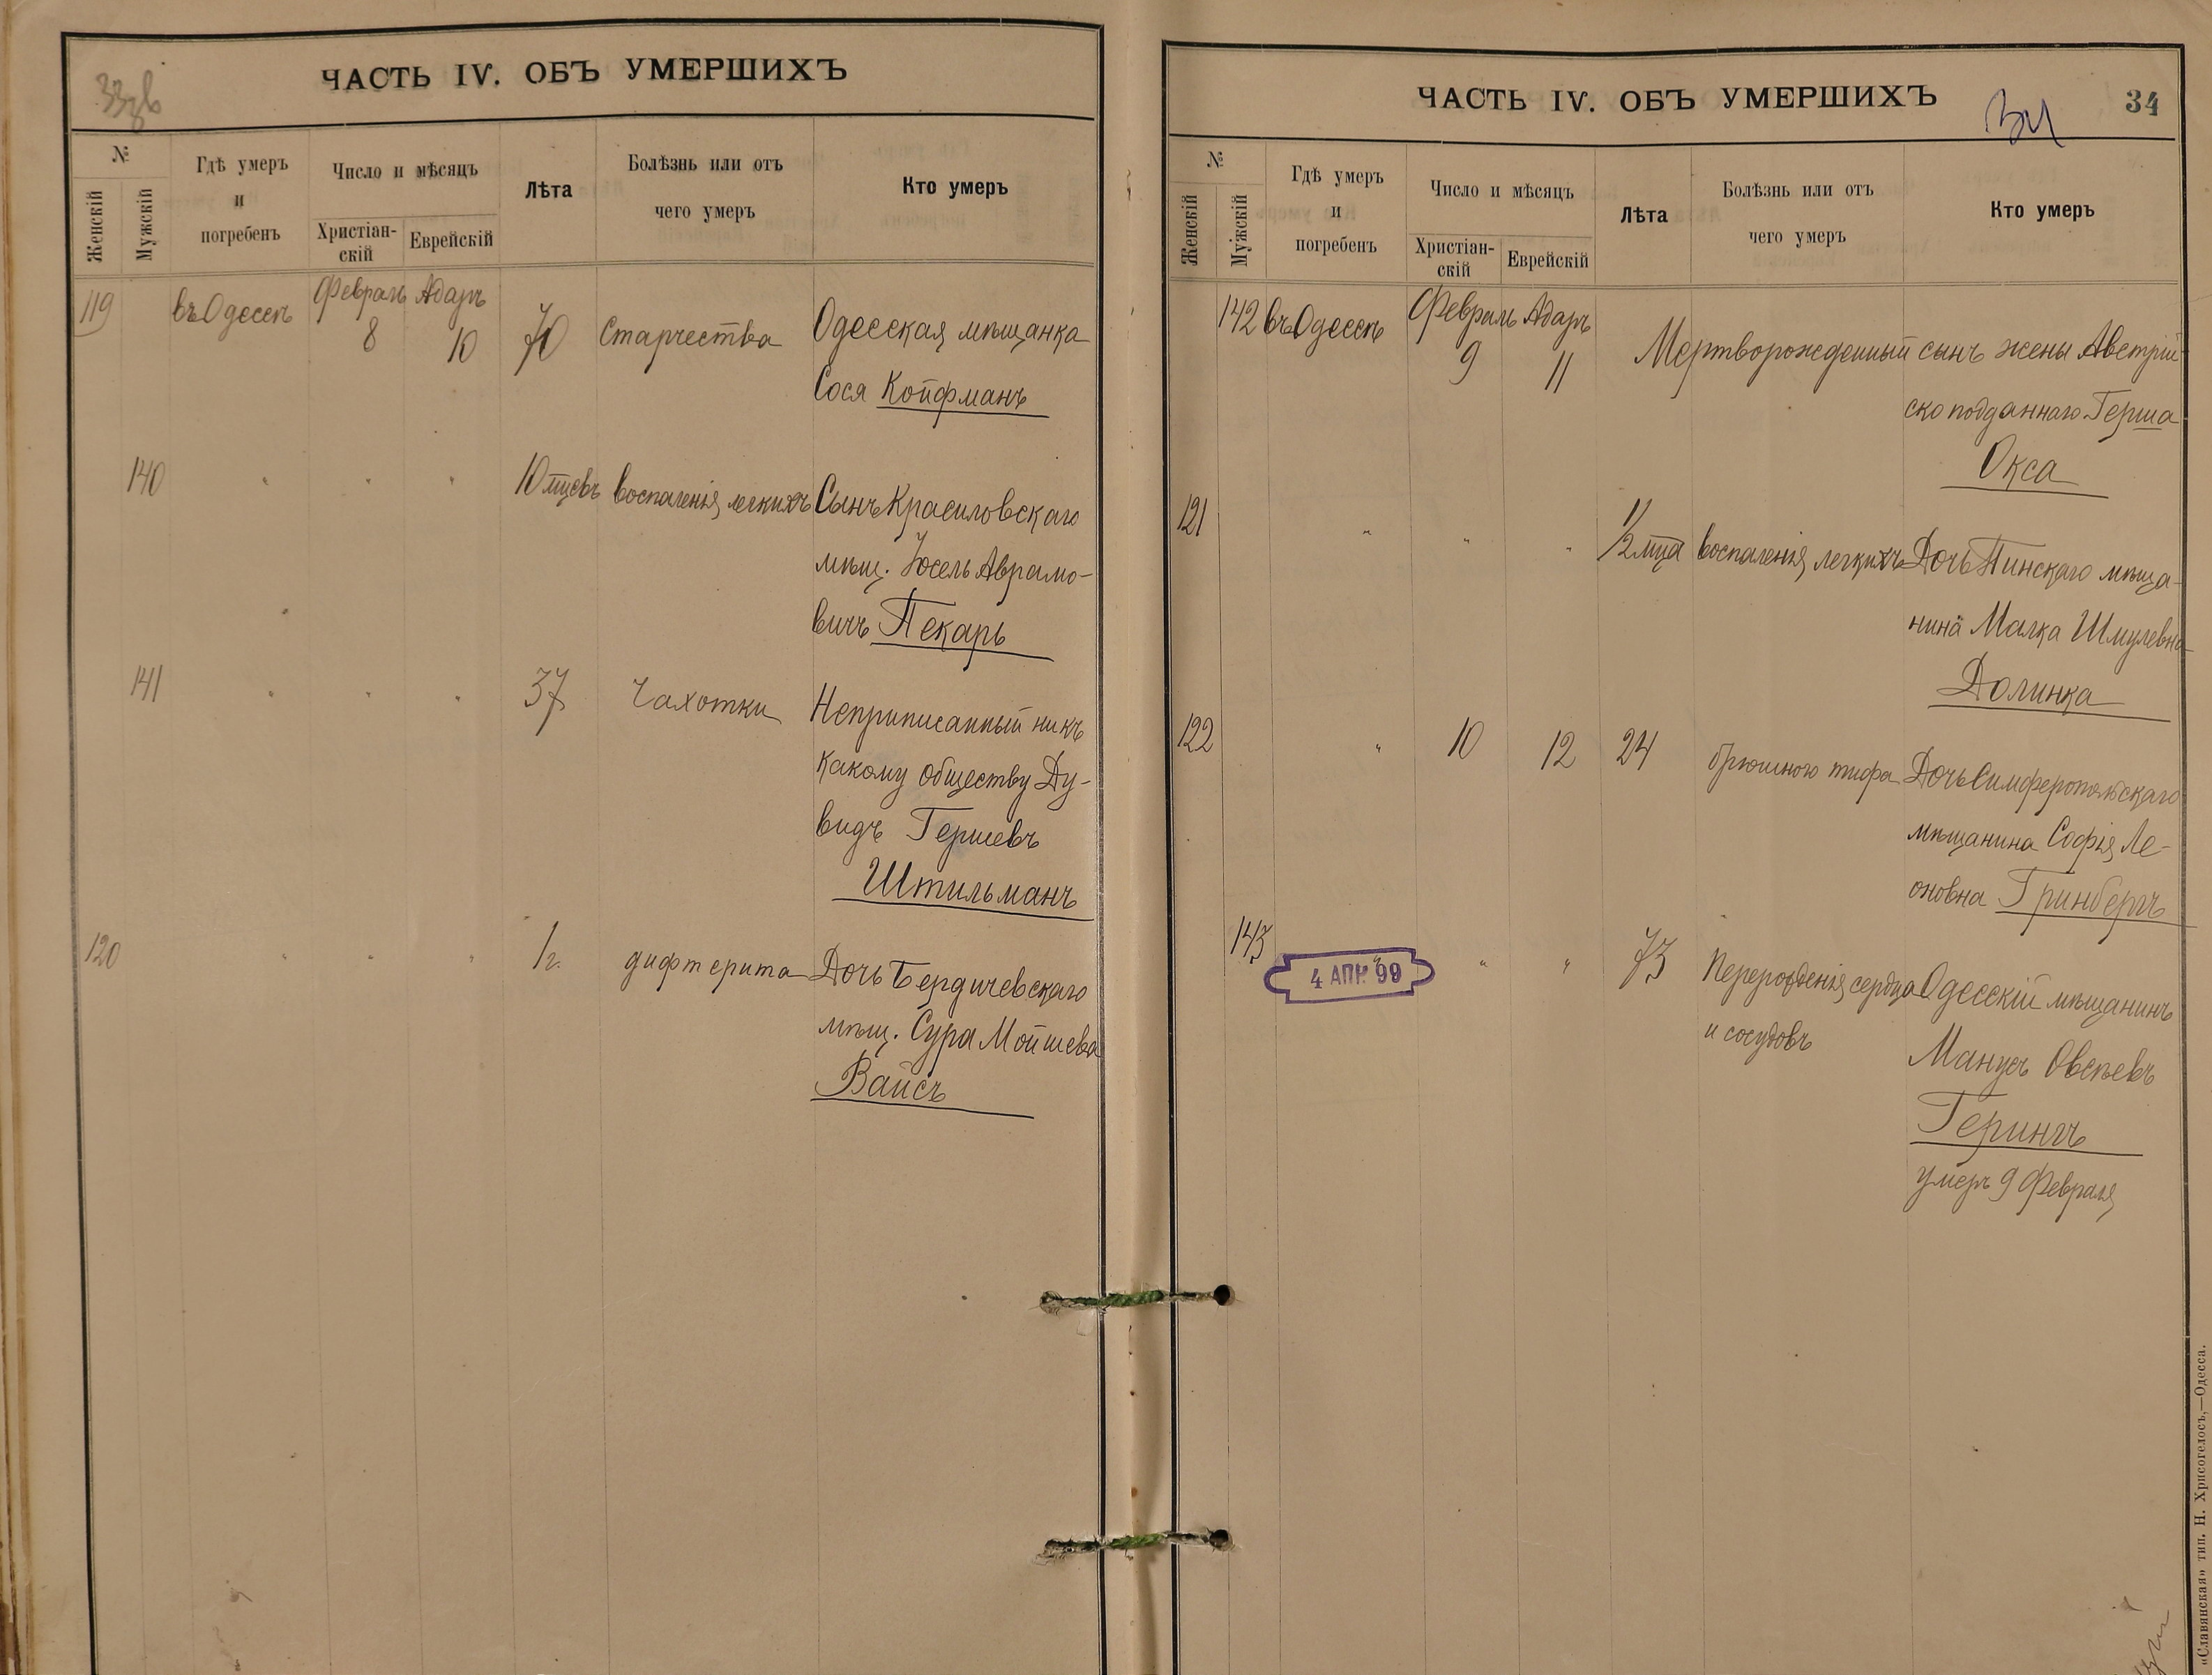 ЧАСТЬ IV. ОБЪ УМЕРШИХЪ
№
Женскій
Мужскій
Гдѣ умеръ
и
погребенъ
Число и мѣсяцъ
Христіан-
скій
Еврейскій
Лѣта
Болѣзнь или отъ
чего умеръ
Кто умеръ
119 въ Одессѣ Февраль 8 Адаръ 10 70 Старчества Одесская мѣщанка
Сося Койфманъ
140 " " " 10 мцевъ воспаленія легкихъ Сынъ Красиловскаго
мѣщ. Іосель Аврамо-
вичъ Пекарь
141 " " " 37 Чахотки Неприписанный никъ
какому обществу Ду-
видъ Гершевъ
Штильманъ
120 " " " 1 г. дифтерита Дочь Бердичевскаго
мѣщ. Сура Мойшева
Вайсъ
ЧАСТЬ IV. ОБЪ УМЕРШИХЪ
34
34
№
Женскій
Мужскій
Гдѣ умеръ
и
погребенъ
Число и мѣсяцъ
Христіан-
скій
Еврейскій
Лѣта
Болѣзнь или отъ
чего умеръ
Кто умеръ
142 въ Одессѣ Февраль 9 Адаръ 11 Мертворожденный сынъ жены Австрій-
ско подданнаго Герша
Окса
121 " " " 1/2 мца воспаленія легкихъ Дочь Пинскаго мѣща-
нина Малка Шмулевна
Долинка
122 " 10 12 24 брюшного тифа Дочь Симферопольскаго
мѣщанина Софія Ле-
оновна Гринбергъ
143 " " " 73 Перерожденія сердца Одесскій мѣщанинъ
и сосудовъ
Манусъ Овсѣевъ
Герингъ
умеръ 9 Февраля
4 АПР. 99
«Славянская» тип. Н. Хрисогелосъ,—Одесса.